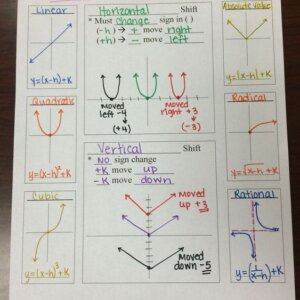 Linear
y=(x-h)+K
Quadratic
y=(x-h)²+K
Cubic
y=(x-h)³+K
Horizontal Shift
* Must change sign in ( )
(-h) → + move right
(+h) → - move left
moved
left -4
↓
(+4)
moved
right +3
↓
(-3)
Vertical Shift
* NO sign change
+K move up
-K move down
moved
up +3
moved
down -5
Absolute Value
y=|x-h|+K
Radical
y=√x-h+K
Rational
y=(1/x-h)+K